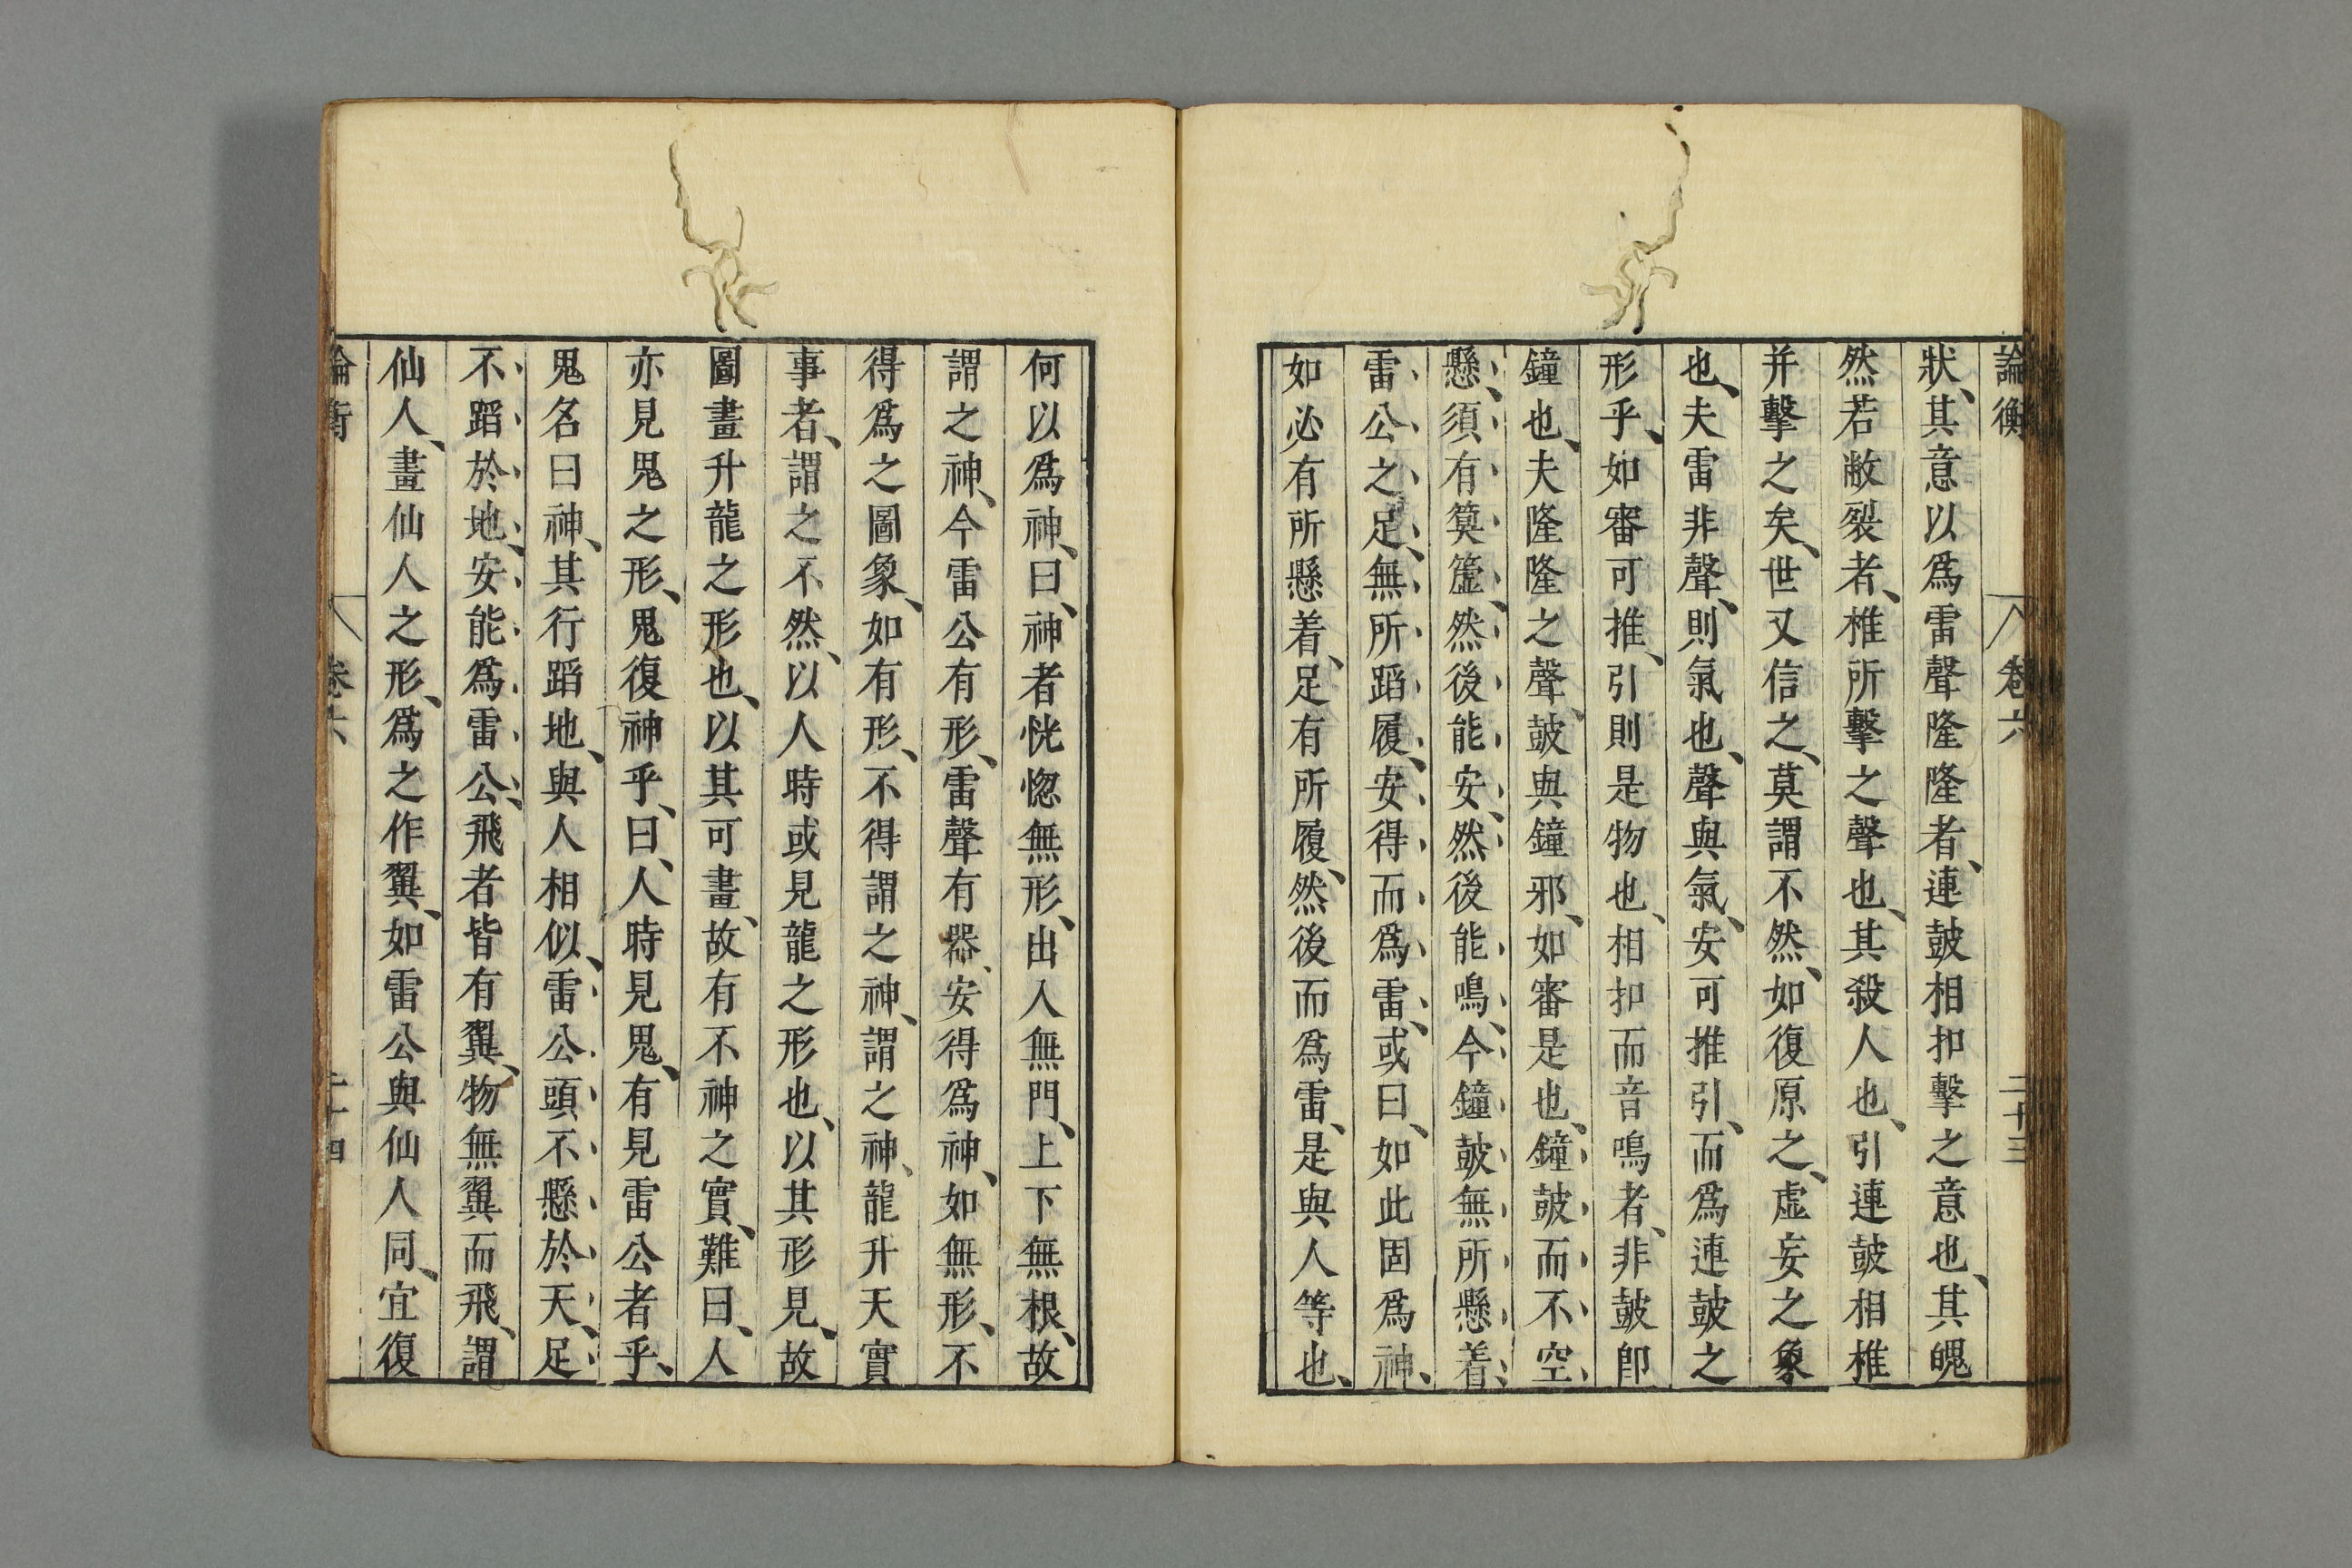 論衡 卷六 二十三
狀、其意以爲雷聲隆隆者、連鼓相扣擊之意也、其魄
然若敝裂者、椎所擊之聲也、其殺人也、引連鼓相椎
并擊之矣、世又信之、莫謂不然、如復原之、虛妄之象
也、夫雷非聲、則氣也、聲與氣、安可推引、而爲連鼓之
形乎、如審可推、引則是物也、相扣而音鳴者、非鼓卽
鐘也、夫隆隆之聲、鼓與鐘邪、如審是也、鐘鼓而不空
懸、須有筼簴、然後能安、然後能鳴、今鐘鼓無所懸着、
雷公之足、無所蹈履、安得而爲雷、或曰、如此固爲神、
如必有所懸着、足有所履、然後而爲雷、是與人等也、
何以爲神、曰、神者恍惚無形、出入無門、上下無根、故
謂之神、今雷公有形、雷聲有器、安得爲神、如無形、不
得爲之圖象、如有形、不得謂之神、謂之神、龍升天實
事者、謂之不然、以人時或見龍之形也、以其形見、故
圖畫升龍之形也、以其可畫、故有不神之實、難曰、人
亦見鬼之形、鬼復神乎、曰、人時見鬼、有見雷公者乎、
鬼名曰神、其行蹈地、與人相似、雷公頭不懸於天、足
不蹈於地、安能爲雷公、飛者皆有翼、物無翼而飛、謂
仙人、畫仙人之形、爲之作翼、如雷公與仙人同、宜復
論衡 卷六 二十四